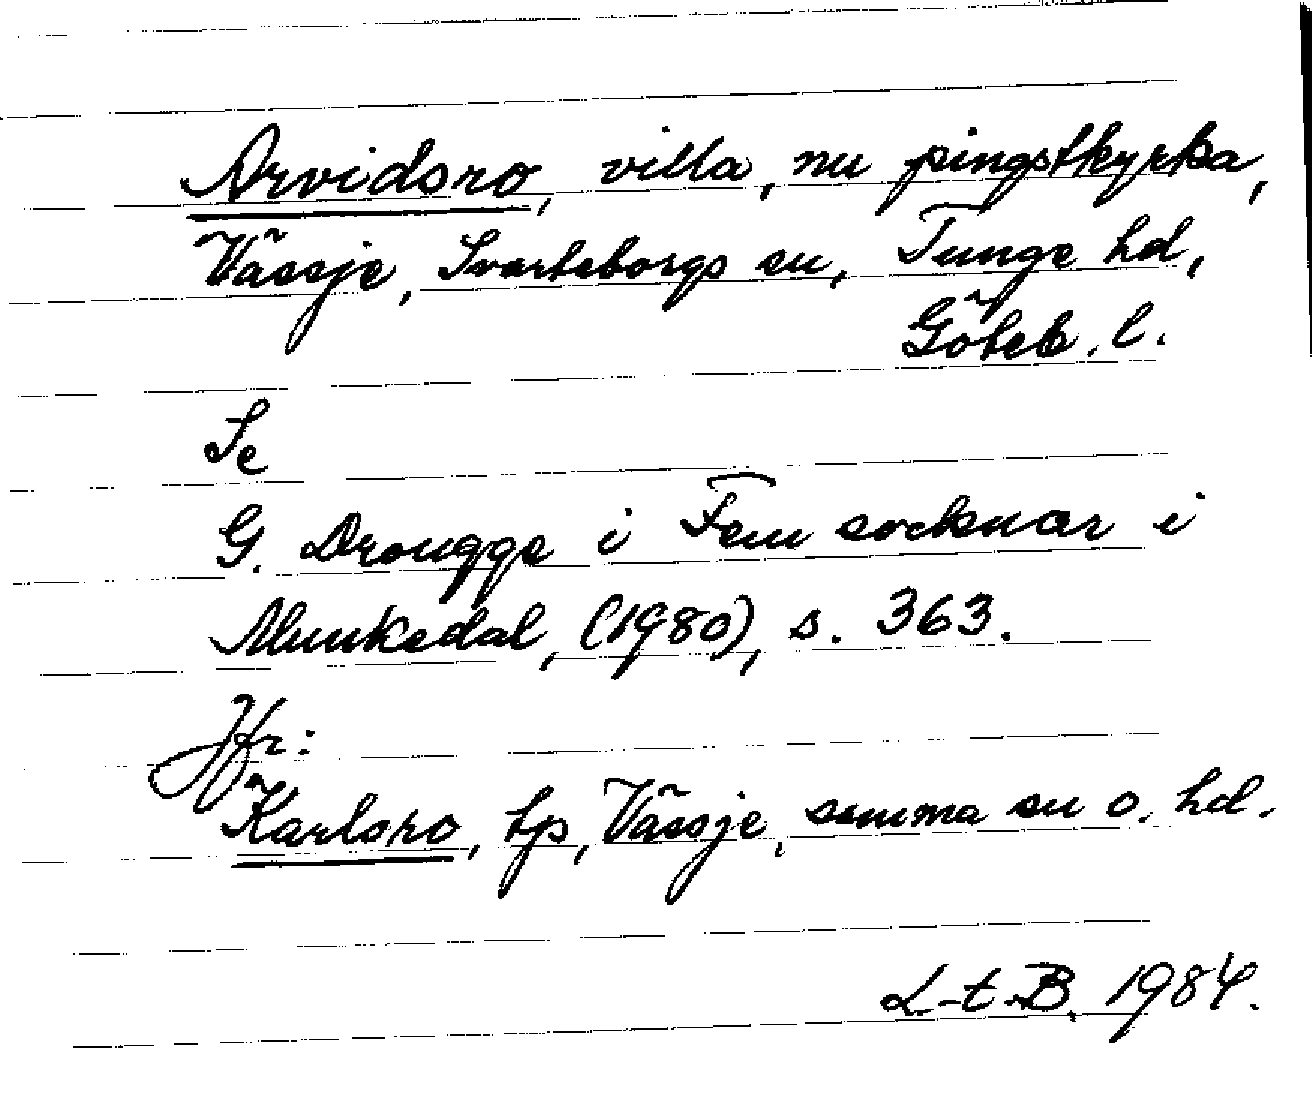 Arvidsro, villa, nu pingstkyrka,
Vässje, Svarteborgs sn, Tunge hd,
Göteb. l.
Se
G. Drougge i Fem socknar i
Munkedal, (1980), s. 363.
Jfr:
Karlsro, tp, Vässje, samma sn o. hd.
L-t B. 1984.